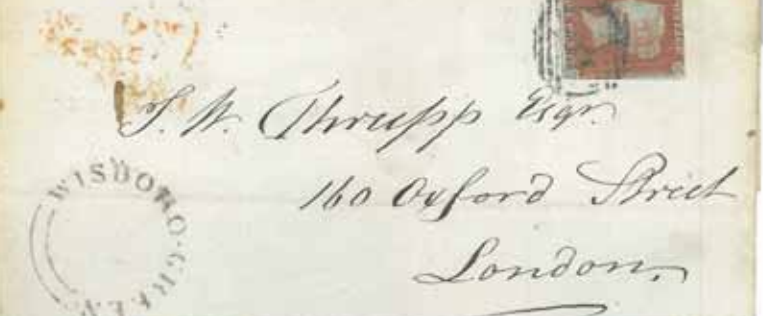 J. W. Thrupp Esqr.
160 Oxford Street
London.
WISBORO-GREEN